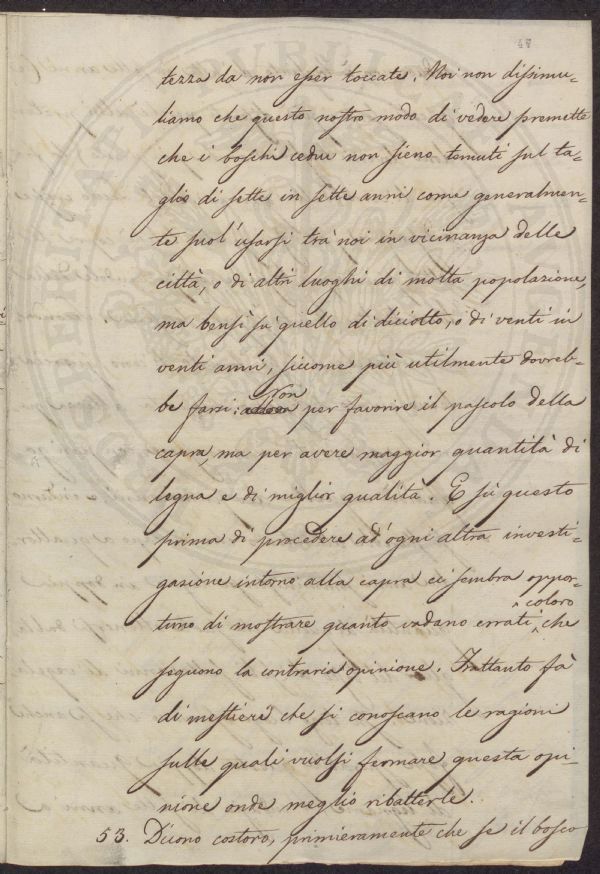 48
tezza da non esser toccate. Noi non dissimu-
liamo che questo nostro modo di vedere premette
che i boschi cedui non sieno tenuti sul ta-
glio di sette in sette anni come generalmen-
te suol' usarsi trà noi in vicinanza delle
città, o di altri luoghi di molta popolazione,
ma bensì sù quello di diciotto, o di venti in
venti anni, siccome più utilmente dovreb-
be farsi: Non per favorire il pascolo della
capra, ma per avere maggior quantità di
legna e di miglior qualità. E sù questo
prima di procedere ad' ogni altra investi-
gasione intorno alla capra ci sembra oppor-
tuno di mostrare quanto vadano errati coloro che
seguono la contraria opinione. Frattanto fà
di mestieri che si conoscano le ragioni
sulle quali vuolsi fermare questa opi-
nione onde meglio ribatterle.
53. Dicono costoro, primieramente che se il bosco